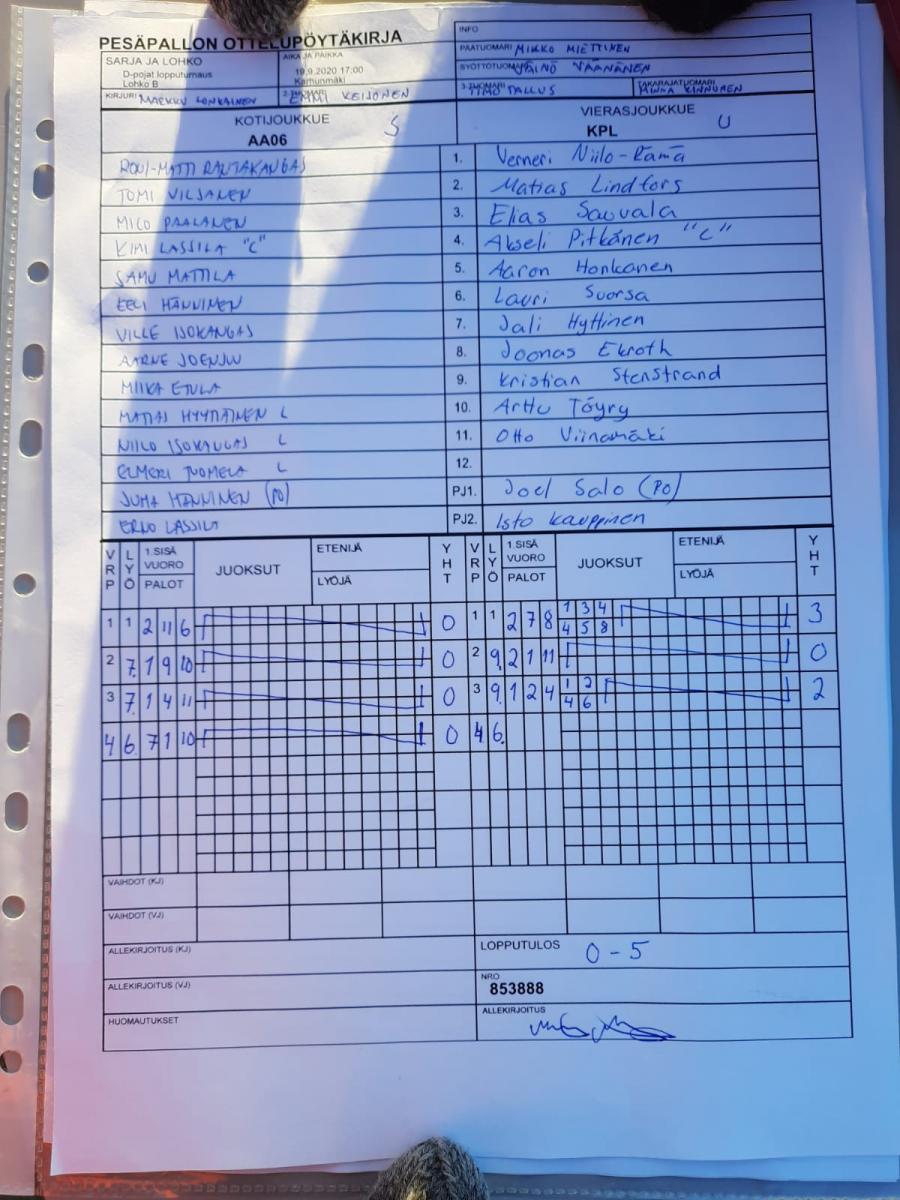 PESÄPALLON OTTELUPÖYTÄKIRJA
INFO
SARJA JA LOHKO
D-pojat lopputurnaus
Lohko B
AIKA JA PAIKKA
19.9.2020 17:00
Karhunmäki
PÄÄTUOMARI MIKKO MIETTINEN
SYÖTTÖTUOMARI VÄINÖ VÄÄNÄNEN
KIRJURI MARKKU LONKAINEN
2-TUOMARI EMMI KEIJONEN
3-TUOMARI TIMO TALLUS
TAKARAJATUOMARI MINNA KINNUNEN
KOTIJOUKKUE S
AA06
VIERASJOUKKUE U
KPL
ROUI-MATTI RAUTAKANGAS 1. Verneri Niilo-Rämä
TOMI VILJANEN 2. Matias Lindfors
MICO PAALANEN 3. Elias Sauvala
KIMI LASSILA "C" 4. Akseli Pitkänen "C"
SAMU MATTILA 5. Aaron Honkanen
EELI HÄNNINEN 6. Lauri Suorsa
VILLE ISOKANGAS 7. Jali Hyttinen
AARNE JOENJU 8. Joonas Ekroth
MIIKA ETULA 9. Kristian Stenstrand
MATIAS HYYTIÄINEN L 10. Arttu Töyry
NIILO ISOKANGAS L 11. Otto Viinamäki
ELMERI TUOMELA L 12.
JUHA HÄNNINEN (PO) PJ1. Joel Salo (PO)
ERNO LASSILA PJ2. Isto Kauppinen
VRP LYÖ 1.SISÄ VUORO PALOT JUOKSUT ETENIJÄ LYÖJÄ YHT VRP LYÖ 1.SISÄ VUORO PALOT JUOKSUT ETENIJÄ LYÖJÄ YHT
1 1 2 11 6 0 1 1 2 7 8 1 3 4 3
4 5 8
2 7. 1 9 10 0 2 9. 2 1 11 0
3 7. 1 4 11 0 3 9. 1 2 4 1 2 2
4 6
4 6. 7 1 10 0 4 6.
VAIHDOT (KJ)
VAIHDOT (VJ)
ALLEKIRJOITUS (KJ)
LOPPUTULOS 0 - 5
ALLEKIRJOITUS (VJ)
NRO
853888
HUOMAUTUKSET
ALLEKIRJOITUS